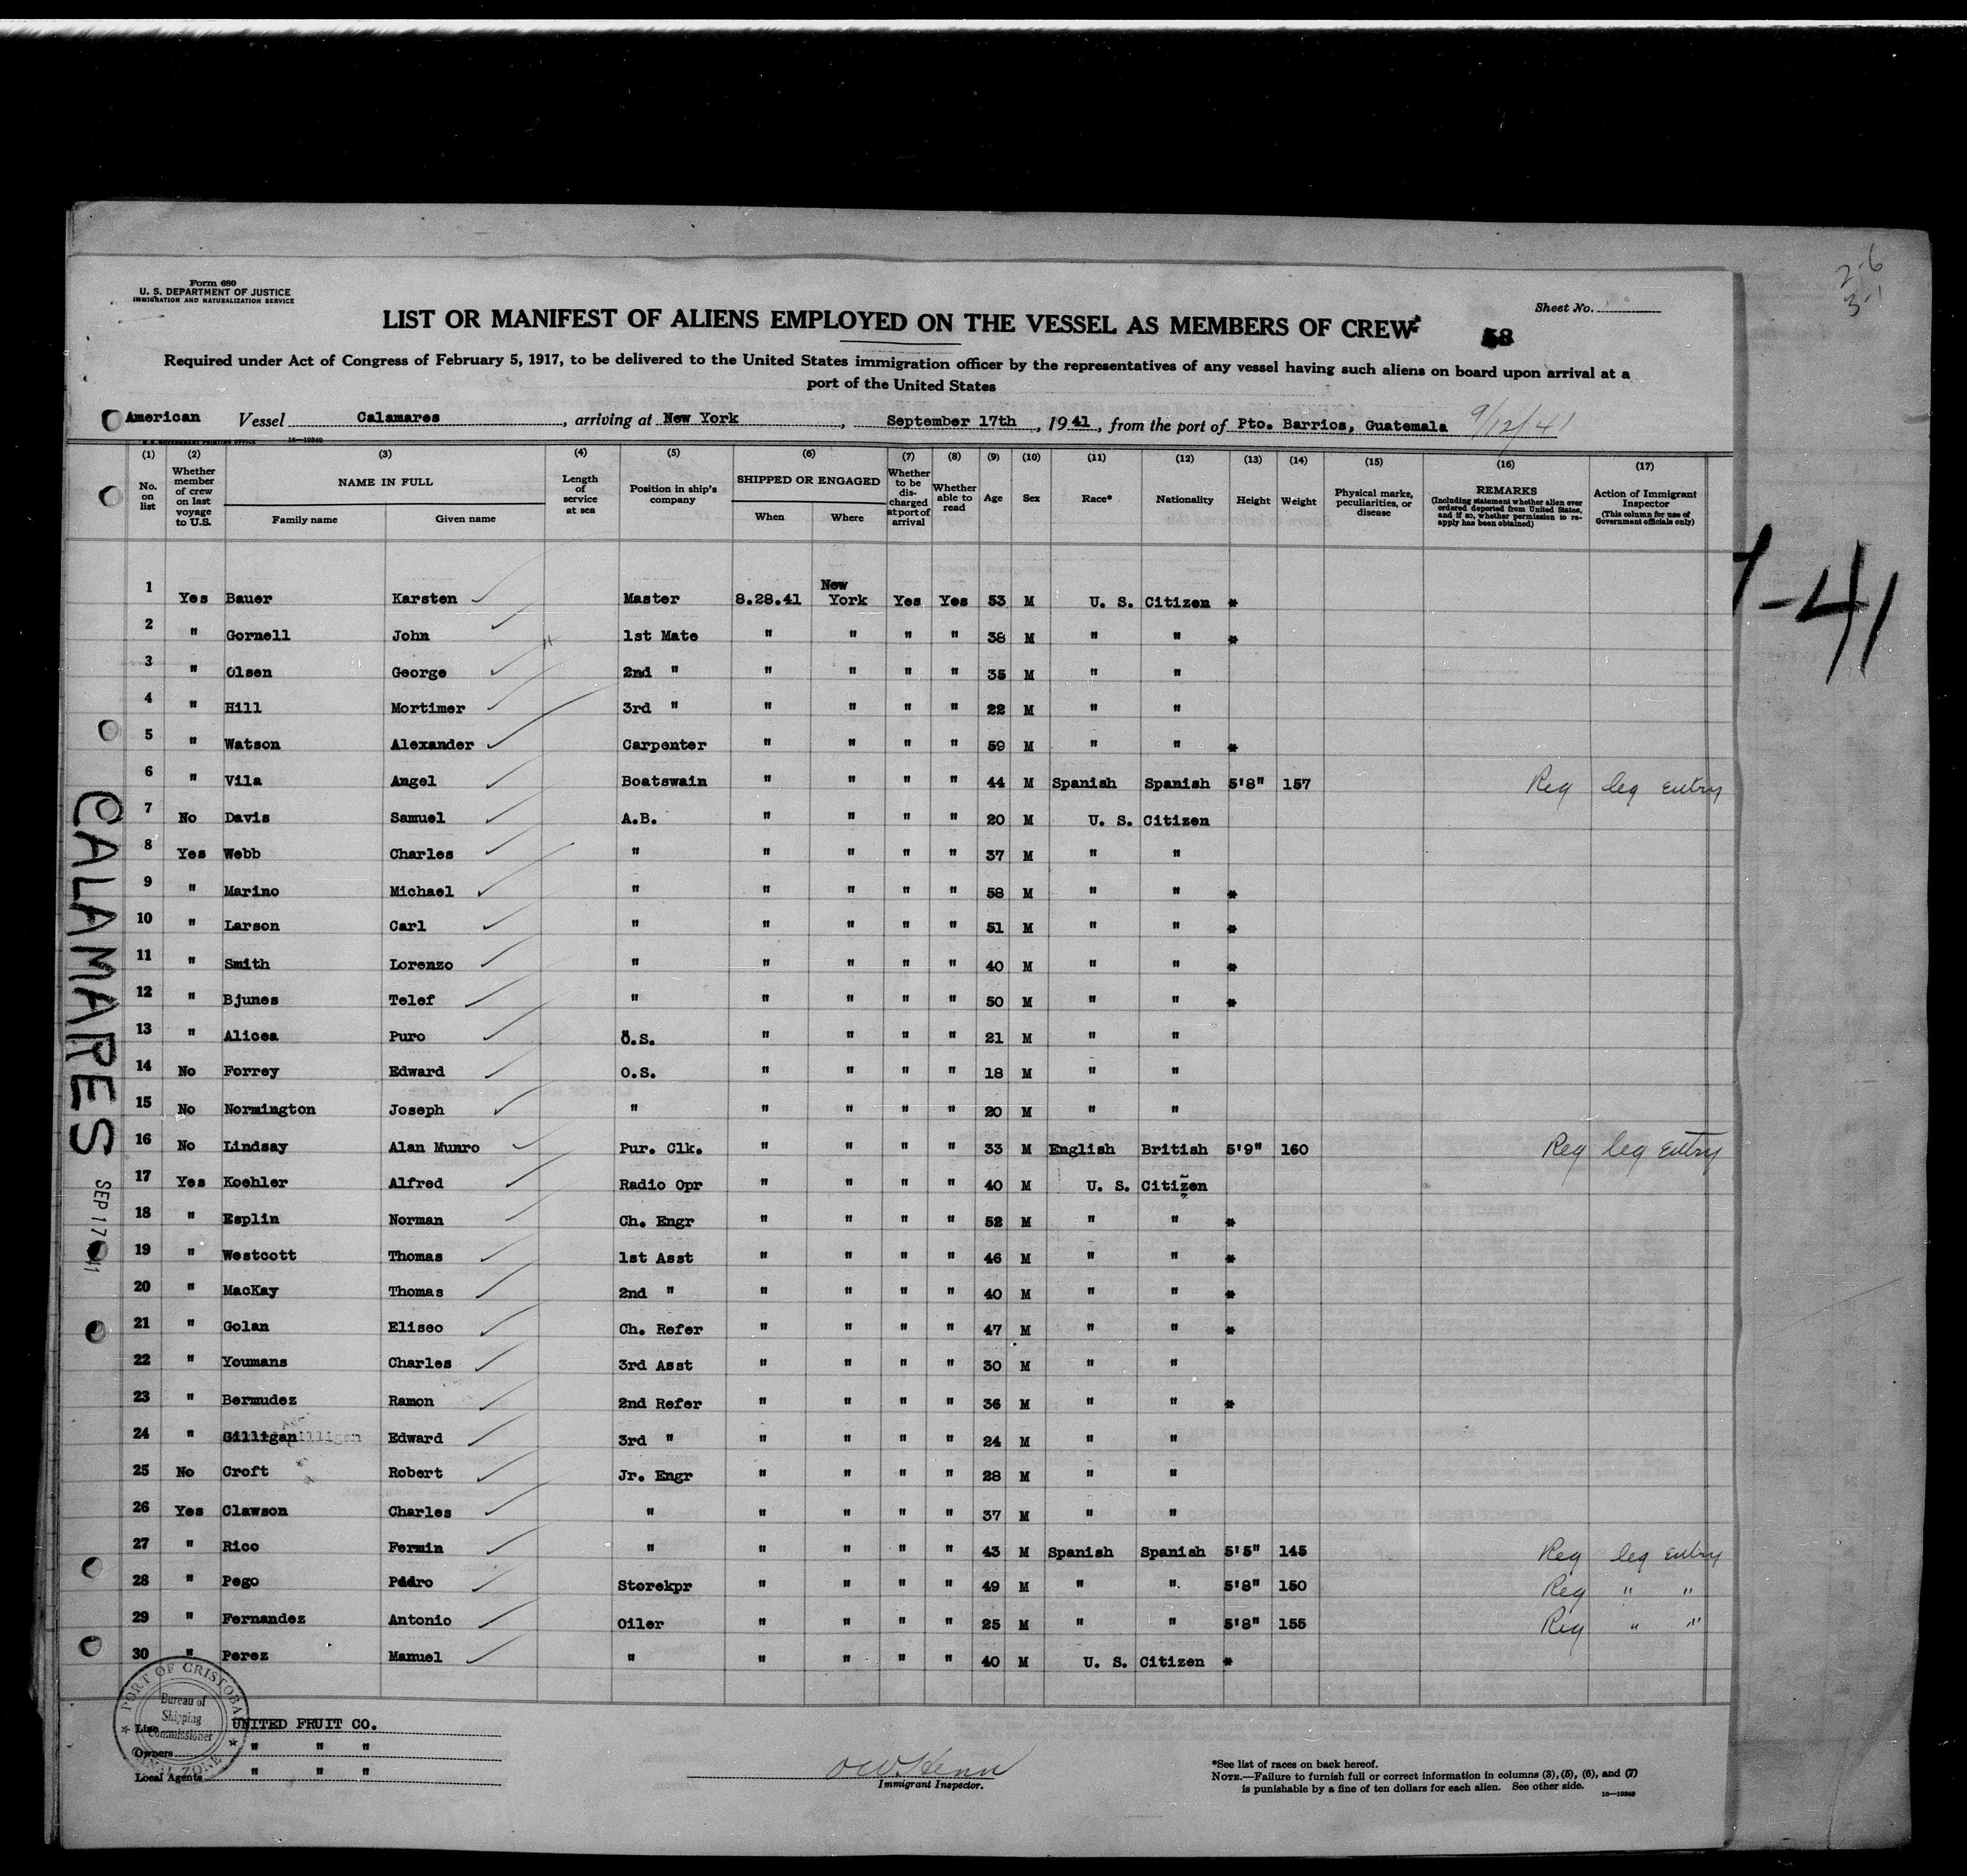 Form 680
U. S. DEPARTMENT OF JUSTICE
IMMIGRATION AND NATURALIZATION SERVICE
Sheet No.
LIST OR MANIFEST OF ALIENS EMPLOYED ON THE VESSEL AS MEMBERS OF CREW
58
Required under Act of Congress of February 5, 1917, to be delivered to the United States immigration officer by the representatives of any vessel having such aliens on board upon arrival at a
port of the United States
American Vessel Calamares, arriving at New York, September 17th, 1941, from the port of Pto. Barrios, Guatemala 9/12/41
U. S. GOVERNMENT PRINTING OFFICE 16—19349
(1) (2) (3) (4) (5) (6) (7) (8) (9) (10) (11) (12) (13) (14) (15) (16) (17)
No. on list
Whether member of crew on last voyage to U.S.
NAME IN FULL
Family name Given name
Length of service at sea
Position in ship's company
SHIPPED OR ENGAGED
When Where
Whether to be discharged at port of arrival
Whether able to read
Age
Sex
Race*
Nationality
Height
Weight
Physical marks, peculiarities, or disease
REMARKS
(Including statement whether alien ever ordered deported from United States, and if so, whether permission to reapply has been obtained)
Action of Immigrant Inspector
(This column for use of Government officials only)
1 Yes Bauer Karsten Master 8.28.41 New York Yes Yes 53 M U. S. Citizen *
2 " Gornell John 1st Mate " " " " 38 M " " *
3 " Olsen George 2nd " " " " " 35 M " "
4 " Hill Mortimer 3rd " " " " " 22 M " "
5 " Watson Alexander Carpenter " " " " 59 M " " *
6 " Vila Angel Boatswain " " " " 44 M Spanish Spanish 5'8" 157 Reg leg entry
7 No Davis Samuel A.B. " " " " 20 M U. S. Citizen
8 Yes Webb Charles " " " " " 37 M " "
9 " Marino Michael " " " " " 58 M " " *
10 " Larson Carl " " " " " 51 M " " *
11 " Smith Lorenzo " " " " " 40 M " " *
12 " Bjunes Telef " " " " " 50 M " " *
13 " Alicea Puro O.S. " " " " 21 M " "
14 No Forrey Edward O.S. " " " " 18 M " "
15 No Normington Joseph " " " " " 20 M " "
16 No Lindsay Alan Munro Pur. Clk. " " " " 33 M English British 5'9" 160 Reg leg entry
17 Yes Koehler Alfred Radio Opr " " " " 40 M U. S. Citizen
18 " Esplin Norman Ch. Engr " " " " 52 M " " *
19 " Westcott Thomas 1st Asst " " " " 46 M " " *
20 " MacKay Thomas 2nd " " " " " 40 M " " *
21 " Golan Eliseo Ch. Refer " " " " 47 M " " *
22 " Youmans Charles 3rd Asst " " " " 30 M " "
23 " Bermudez Ramon 2nd Refer " " " " 36 M " " *
24 " Gilligan Edward 3rd " " " " " 24 M " "
25 No Croft Robert Jr. Engr " " " " 28 M " "
26 Yes Clawson Charles " " " " " 37 M " "
27 " Rico Fermin " " " " " 43 M Spanish Spanish 5'5" 145 Reg leg entry
28 " Pego Pedro Storekpr " " " " 49 M " " 5'8" 150 Reg " "
29 " Fernandez Antonio Oiler " " " " 25 M " " 5'8" 155 Reg " "
30 " Perez Manuel " " " " " 40 M U. S. Citizen *
CALAMARES
SEP 17 41
-41
PORT OF CRISTOBAL
Bureau of Shipping Commissioner
CANAL ZONE
Line UNITED FRUIT CO.
Owners " " "
Local Agents " " "
Immigrant Inspector.
*See list of races on back hereof.
NOTE.—Failure to furnish full or correct information in columns (3), (5), (6), and (7)
is punishable by a fine of ten dollars for each alien. See other side.
16—19349